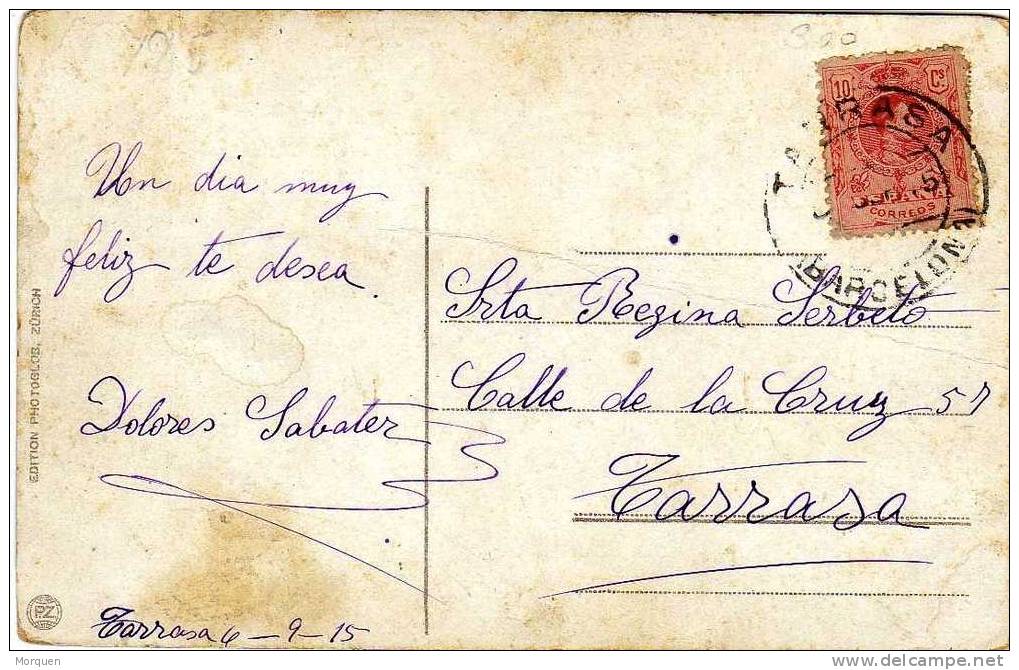 Un dia muy
feliz te desea.
Dolores Sabater
Tarrasa 6-9-15
Srta Regina Serbeto
Calle de la Cruz 57
Tarrasa
10 Cs
ESPAÑA
CORREOS
TARRASA
(BARCELONA)
EDITION PHOTOGLOB, ZÜRICH
P.Z.
Morquen
www.delcampe.net